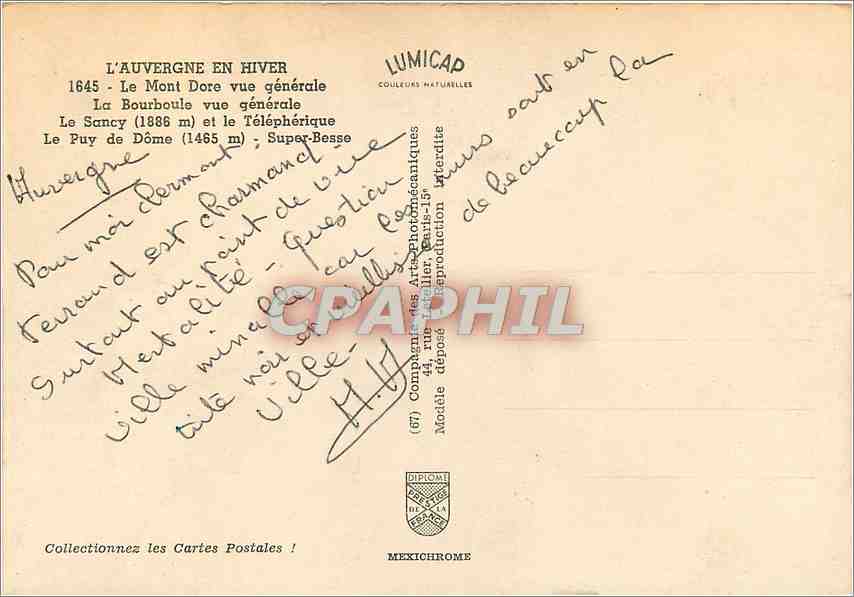 L'AUVERGNE EN HIVER
1645 - Le Mont Dore vue générale
La Bourboule vue générale
Le Sancy (1886 m) et le Téléphérique
Le Puy de Dôme (1465 m) - Super-Besse
LUMICAP
COULEURS NATURELLES
Auvergne
Pour moi Clermont-
Ferrand est charmand -
Surtout au point de vue
Mortalité - Question
ville minable car les murs sont en
suite noir et vieillisse de beaucoup la
Ville -
(67) Compagnie des Arts Photomécaniques
44, rue Letellier, Paris-15e
Modèle déposé - Reproduction Interdite
CPAPHIL
DIPLOME
PRESTIGE
DE LA
FRANCE
MEXICHROME
Collectionnez les Cartes Postales !